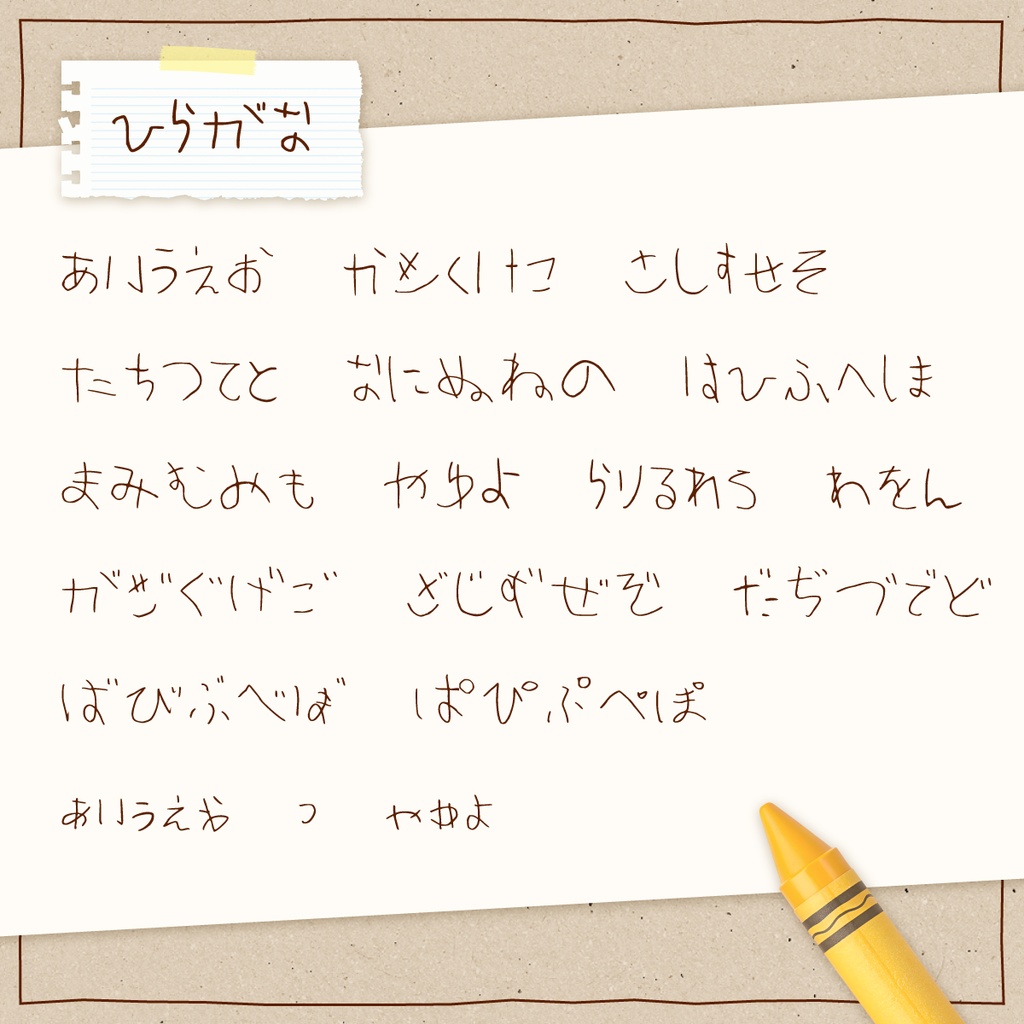 ひらがな
あいうえお かきくけこ さしすせそ
たちつてと なにぬねの はひふへほ
まみむめも やゆよ らりるれろ わをん
がぎぐげご ざじずぜぞ だぢづでど
ばびぶべぼ ぱぴぷぺぽ
ぁぃぅぇぉ っ ゃゅょ